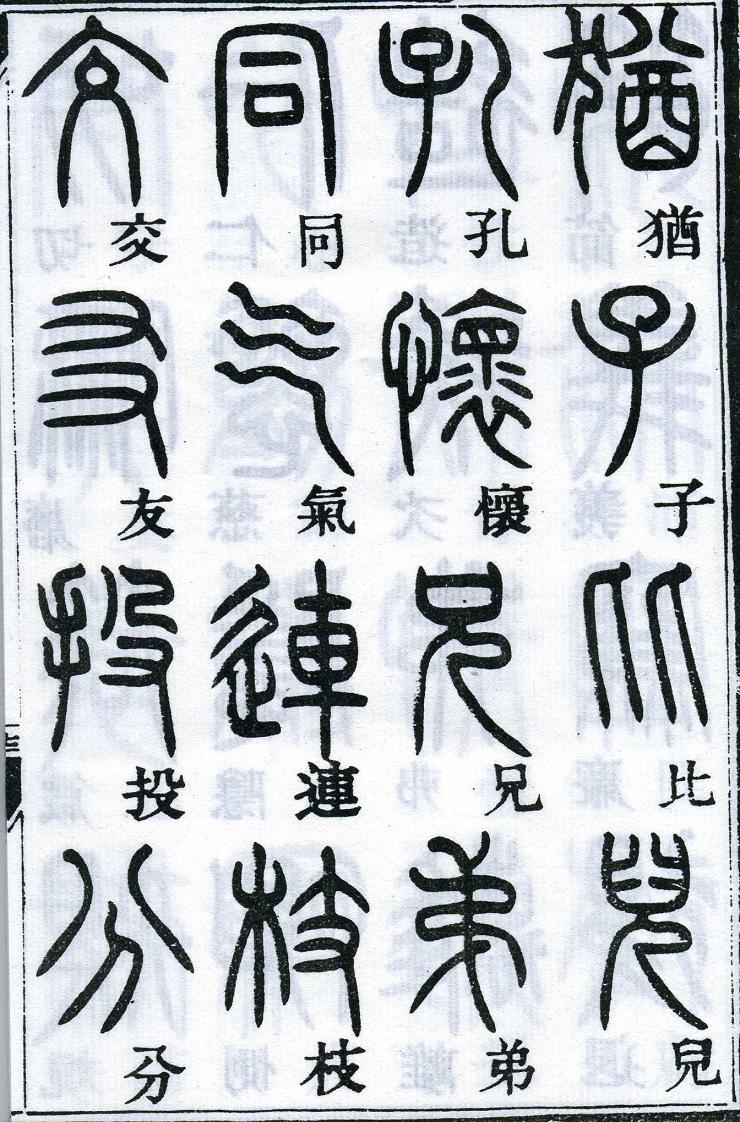 猶子比兒
孔懷兄弟
同氣連枝
交友投分